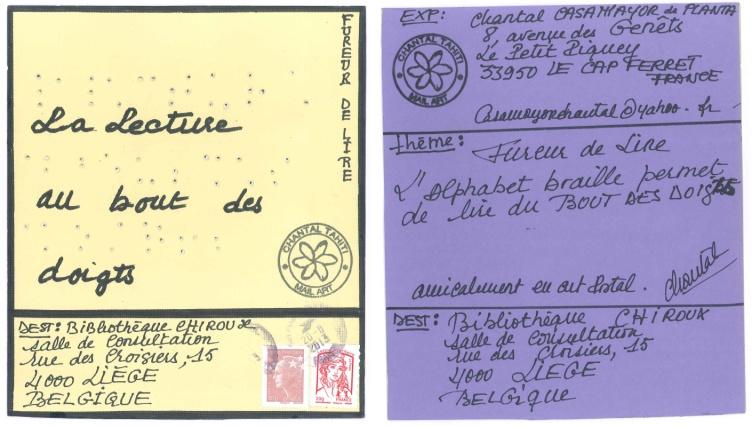 FUREUR DE LIRE
La Lecture
au bout des
doigts
CHANTAL TAHITI
MAIL ART
DEST: Bibliothèque CHIROUX
Salle de Consultation
rue des Croisiers, 15
4000 LIÈGE
BELGIQUE
FRANCE
EXP: Chantal CASAMAYOR de PLANTA
8, avenue des Genêts
Le Petit Piquey
33950 LE CAP FERRET
FRANCE
CHANTAL TAHITI
MAIL ART
Casamayorchantal@yahoo.fr
Thème: Fureur de Lire
L'Alphabet braille permet
de lire du BOUT DES DOIGTS
amicalement en art postal. Chantal
DEST: Bibliothèque CHIROUX
Salle de Consultation
rue des Croisiers, 15
4000 LIEGE
BELGIQUE